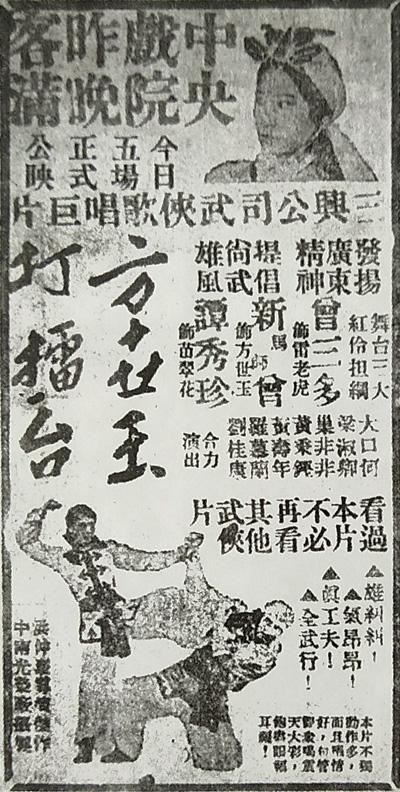 中央戲院昨晚客滿
今日五場正式公映
三興公司武俠歌唱巨片
發揚廣東精神
提倡尚武雄風
方世玉
打擂台
舞台三大紅伶担綱
曾三多
飾雷老虎
新馬師曾
飾方世玉
譚秀珍
飾苗翠花
大口何
梁淑卿
巢非非
黃秉鏗
黃壽年
羅慕蘭
劉桂康
合力演出
看過本片不必再看其他武俠片
▲雄糾糾!
▲氣昂昂!
▲眞工夫!
▲全武行!
本片不獨
動作多,
而且唱情
好,
天大彩,
耳癮!